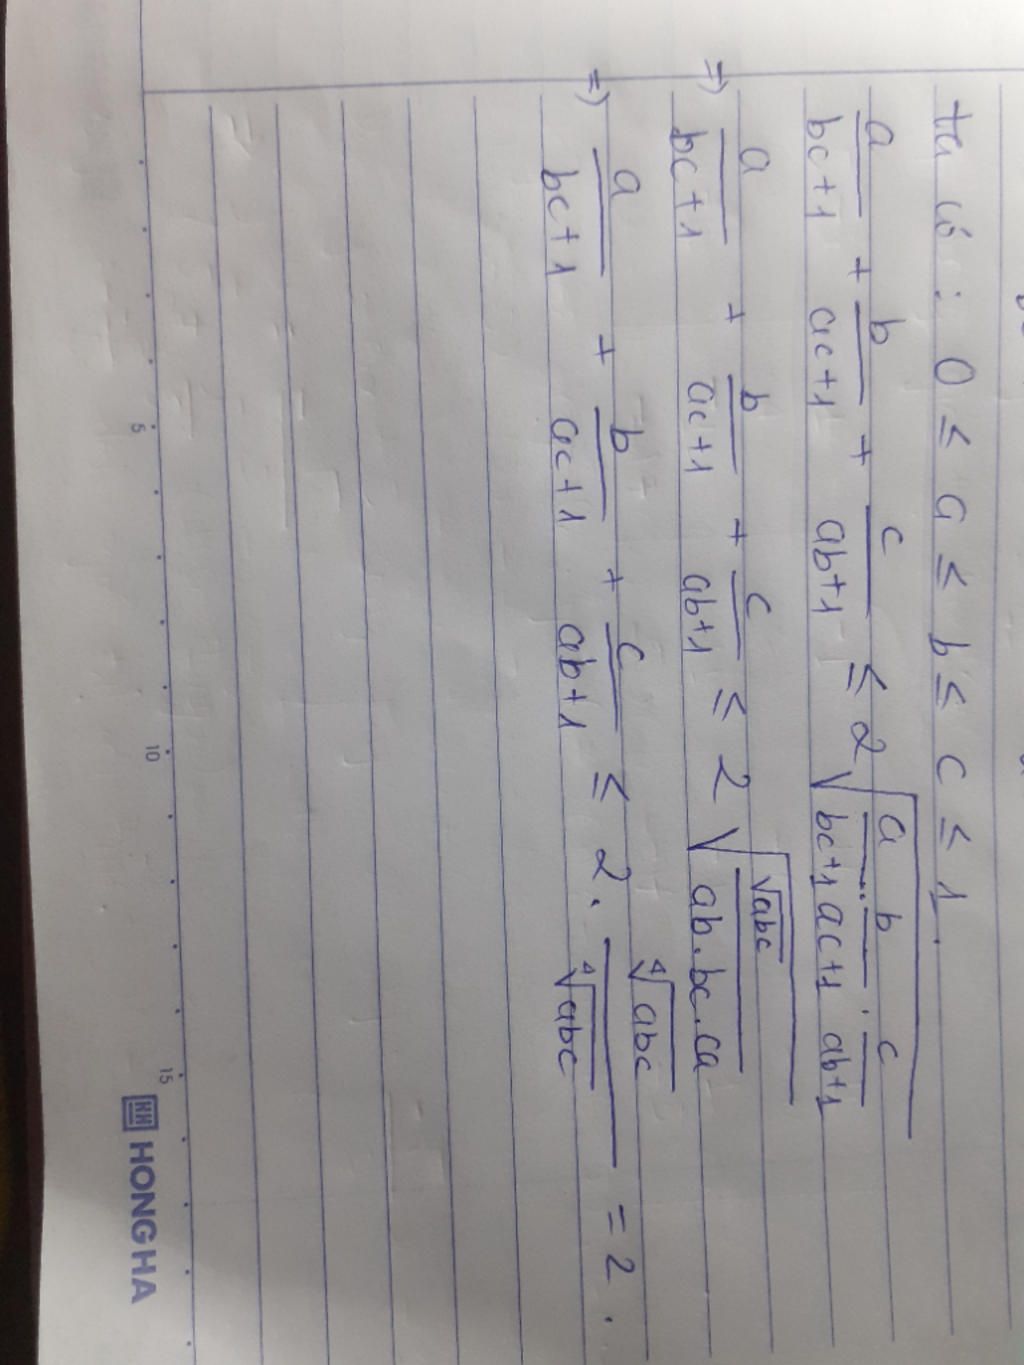 ta có : 0 ≤ a ≤ b ≤ c ≤ 1.
a/(bc+1) + b/(ac+1) + c/(ab+1) ≤ 2√(a/(bc+1) · b/(ac+1) · c/(ab+1))
=) a/(bc+1) + b/(ac+1) + c/(ab+1) ≤ 2√(√abc/(ab.bc.ca))
=) a/(bc+1) + b/(ac+1) + c/(ab+1) ≤ 2. ∜abc/∜abc = 2.
5 10 15
HONG HA